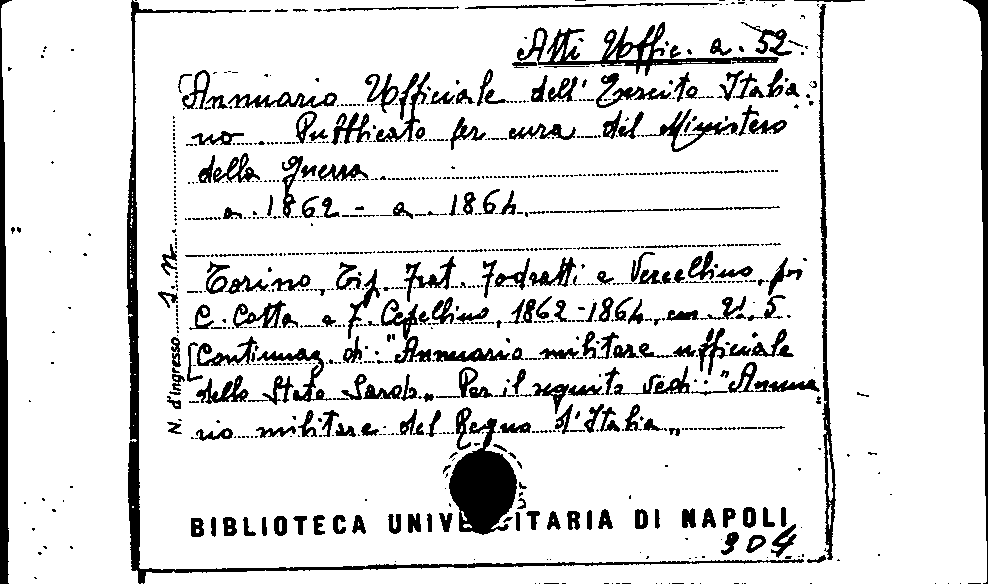 Atti Uffic. a. 52
Annuario Ufficiale dell' Esercito Italia
no. Pubblicato per cura del Ministero
della Guerra.
a. 1862 - a. 1864.
Torino, Tip. Frat. Fodratti e Vercellino, poi
C. Cotta e F. Capellino, 1862-1864, cm. 21,5.
[Continuaz. di: "Annuario militare ufficiale
dello Stato Sardo„ Per il seguito vedi: "Annua
rio militare del Regno d'Italia„
N. d'ingresso
BIBLIOTECA UNIVERSITARIA DI NAPOLI
304